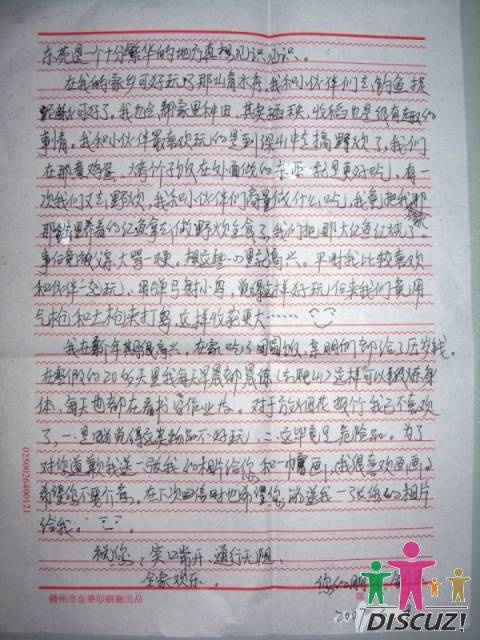 东莞是一个十分繁华的地方真想见识见识。
在我的家乡可好玩了那山有水有,我和小伙伴们去钓鱼捉
可好了。我也会帮家里种田,其实插秧、收稻也是很有趣的
事情。我和小伙伴最喜欢玩的是到深山中去搞野炊了,我们
在那煮鸡蛋、烤竹子饭在外面做的东西吃起更好吃。有一
次我们又去野炊,我和小伙伴们商量做什么吃,我竟把我那
那缸里养着的红鱼拿去做野炊全食了,我们把那大红鱼红烧了,
事后竟被父亲大骂一梗。想这些心里就高兴。平时我比较喜欢
和伙伴一起玩、用弹弓射小鸟,觉得这样好玩,但来我们竟用
气枪和土枪来打鸟,这样收获更大……
我在新年真的很高兴。在家吃了团圆饭,亲朋们都给了压岁钱。
在寒假的20多天里我每天早晨都晨练(去爬山)这样可以锻炼身
体,每天也都在看书写作业左。对于放烟花报竹我已不喜欢
了,一是因觉得这类物品不好玩,二这毕竟是危险品。为了
对你道歉我送一张我的相片给你和一幅画,我很喜欢画画。
希望你不要介意。在下次回信时也希望你能送我一张你的相片
给我。
祝您:笑口常开、通行无阻、
全家欢乐。
您的朋
2007
0250026400121
赣州市金华印刷厂出品
DISCUZ!